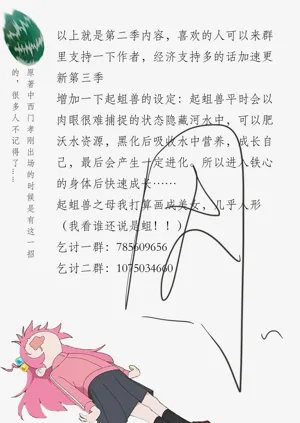 以上就是第二季内容，喜欢的人可以来群
里支持一下作者，经济支持多的话加速更
新第三季
增加一下起蛆兽的设定：起蛆兽平时会以
肉眼很难捕捉的状态隐藏河水中，可以肥
沃水资源，黑化后吸收水中营养，成长自
己，最后会产生一定进化。所以进入铁心
的身体后快速成长……
起蛆兽之母我打算画成美女，几乎人形
（我看谁还说是蛆！！）
乞讨一群：785609656
乞讨二群：1075034660
原著中西门孝刚出场的时候是有这一招
的，很多人不记得了……